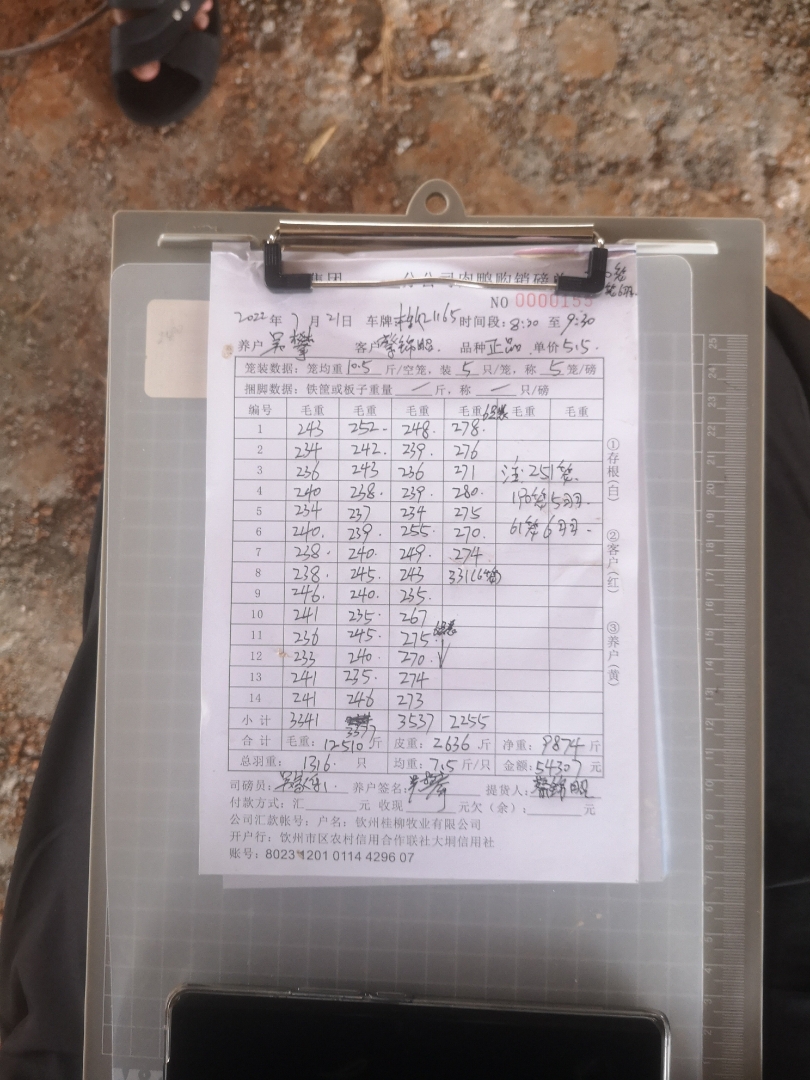 集团 分公司肉鸭购销磅单
NO 0000155
2022年7月21日 车牌 1165 时间段:8:30 至 9:30
养户 吴攀 客户 锦昭 品种 正品 单价 5.5
笼装数据:笼均重 10.5 斤/空笼,装 5 只/笼,称 5 笼/磅
捆脚数据:铁筐或板子重量 — 斤,称 — 只/磅
编号 毛重 毛重 毛重 毛重 毛重 毛重
1 243 252 248 278
2 234 242 239 276
3 236 243 236 271 注:251笼
4 240 238 239 280 190笼5只
5 234 237 234 275
6 240 239 255 270 61笼6只
7 238 240 249 274
8 238 245 243 331(6笼)
9 246 240 235
10 241 235 267
11 236 245 275
12 233 240 270
13 241 235 274
14 241 246 273
小计 3341 3377 3537 2255
合计 毛重:12510斤 皮重:2636斤 净重:9874斤
总羽重:1316 只 均重:7.5 斤/只 金额:54307 元
司磅员: 养户签名: 提货人:
付款方式:汇 元 收现 元欠(余): 元
公司汇款帐号:户名:钦州桂柳牧业有限公司
开户行:钦州市区农村信用合作联社大垌信用社
账号:8023 1201 0114 4296 07
①存根(白)
②客户(红)
③养户(黄)